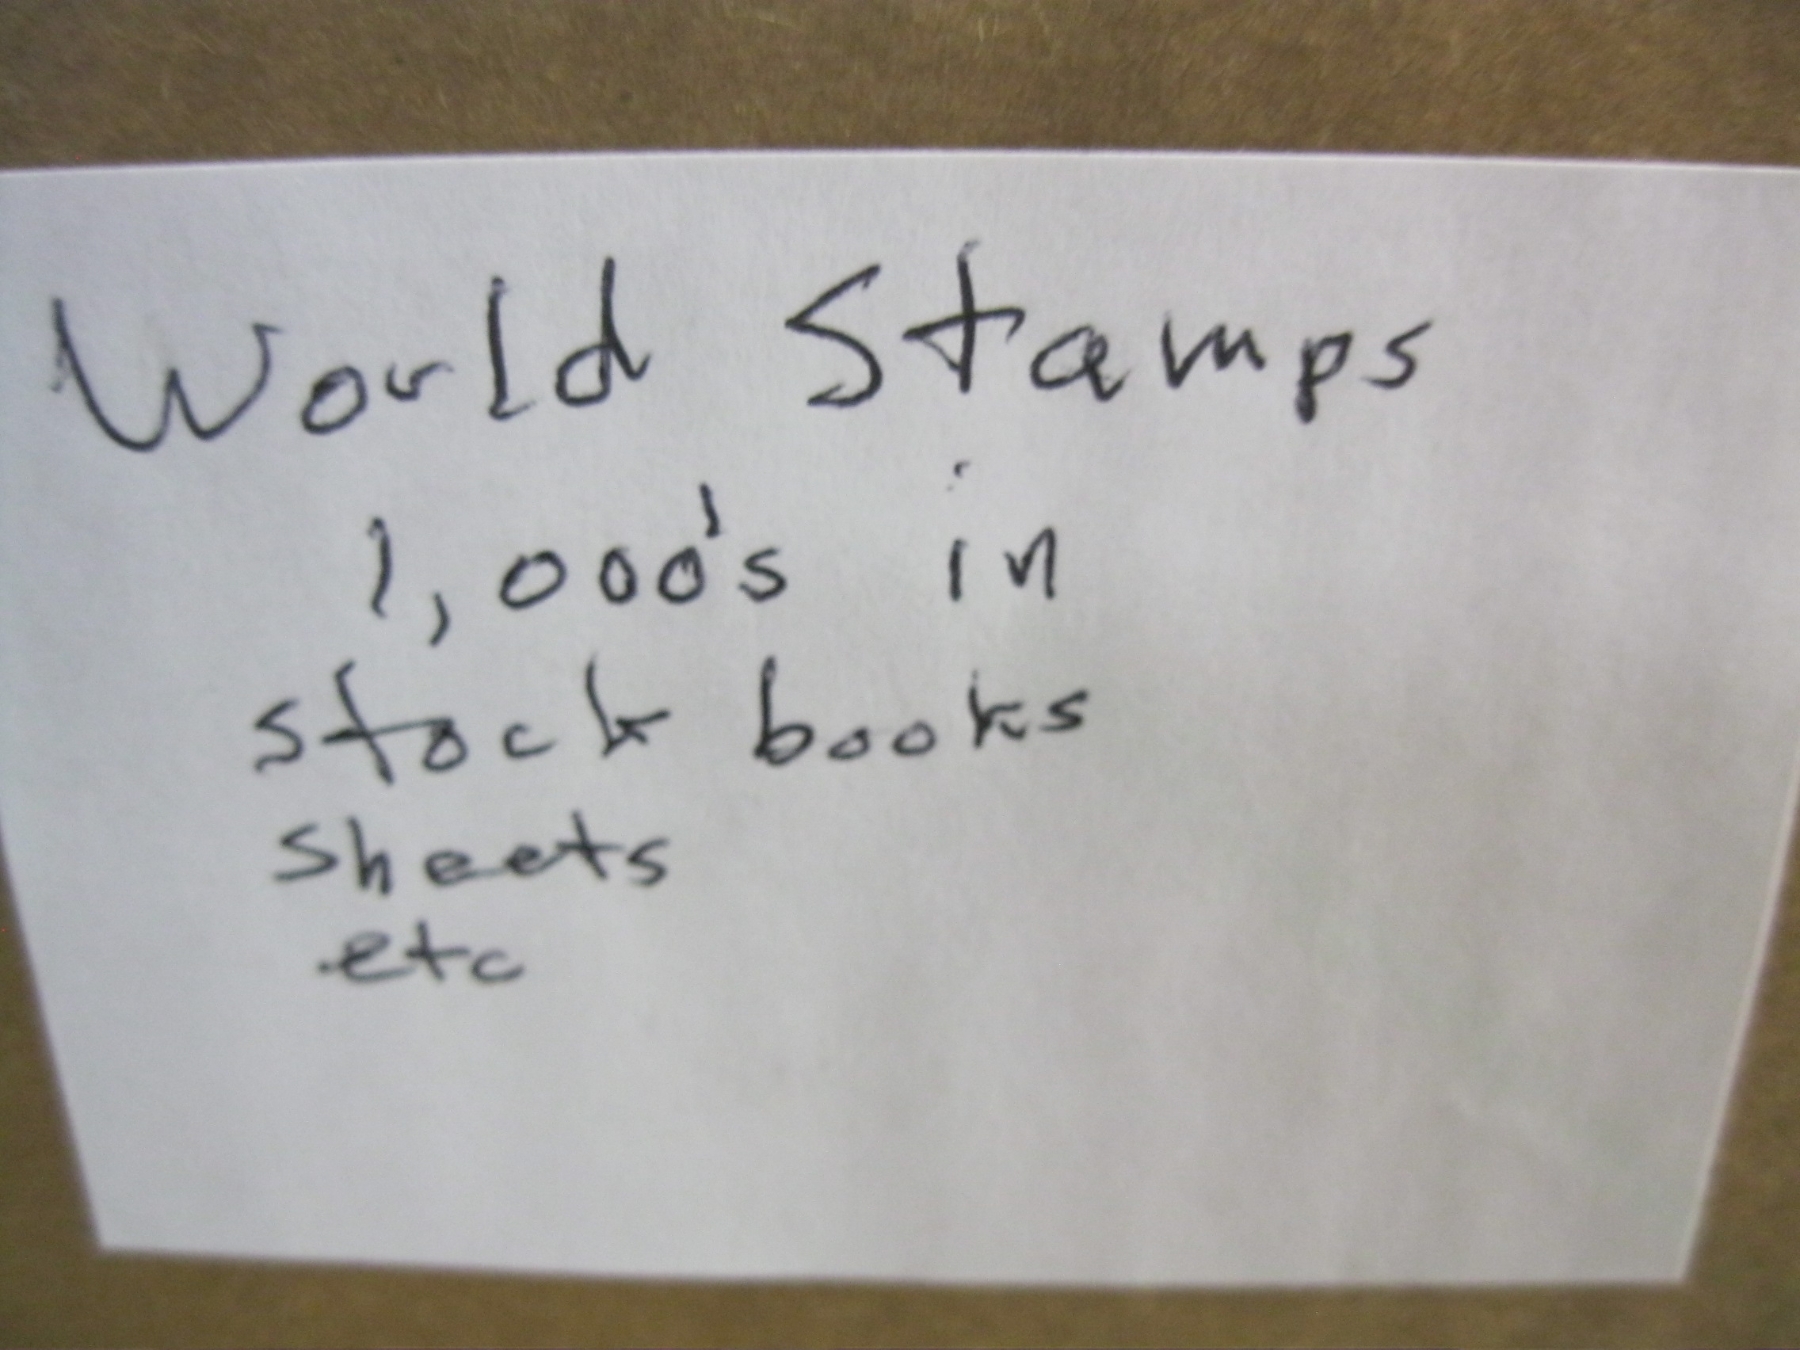 World Stamps
1,000's in
stock books
sheets
etc